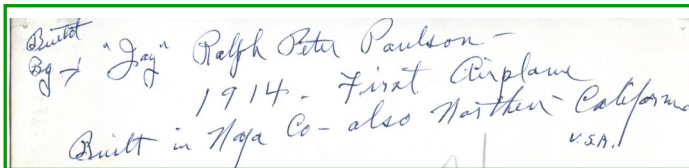 Built
By → "Jay" Ralph Peter Paulson -
1914 - First Airplane
Built in Napa Co - also Northern California
U.S.A.